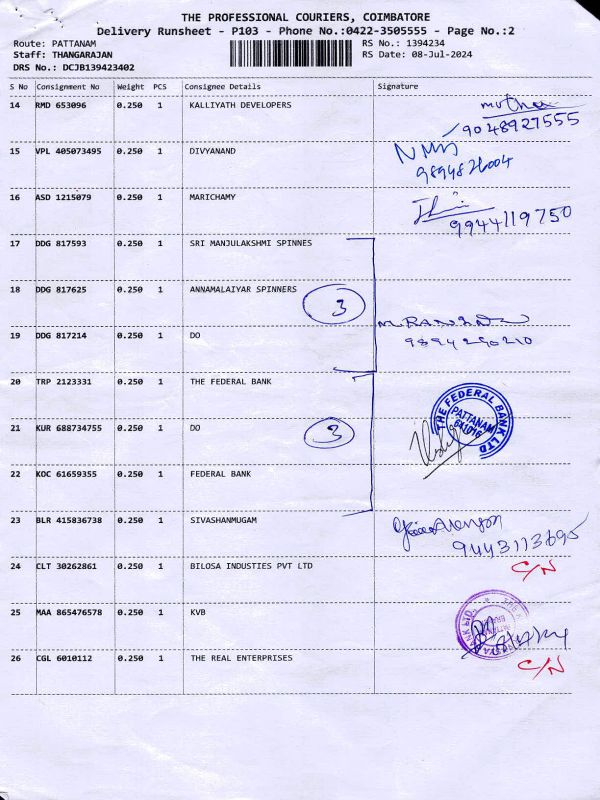 THE PROFESSIONAL COURIERS, COIMBATORE
Delivery Runsheet - P103 - Phone No.:0422-3505555 - Page No.:2
Route: PATTANAM
RS No.: 1394234
Staff: THANGARAJAN
RS Date: 08-Jul-2024
DRS No.: DCJB139423402
S No Consignment No Weight PCS Consignee Details Signature
14 RMD 653096 0.250 1 KALLIYATH DEVELOPERS
9048927555
15 VPL 405073495 0.250 1 DIVYANAND
16 ASD 1215079 0.250 1 MARICHAMY
9944119750
17 DDG 817593 0.250 1 SRI MANJULAKSHMI SPINNES
18 DDG 817625 0.250 1 ANNAMALAIYAR SPINNERS
3
19 DDG 817214 0.250 1 DO
9894290210
20 TRP 2123331 0.250 1 THE FEDERAL BANK
THE FEDERAL BANK LTD
PATTANAM
21 KUR 688734755 0.250 1 DO
3
22 KOC 61659355 0.250 1 FEDERAL BANK
23 BLR 415836738 0.250 1 SIVASHANMUGAM
9443113695
24 CLT 30262861 0.250 1 BILOSA INDUSTIES PVT LTD
C/N
25 MAA 865476578 0.250 1 KVB
26 CGL 6010112 0.250 1 THE REAL ENTERPRISES
C/N